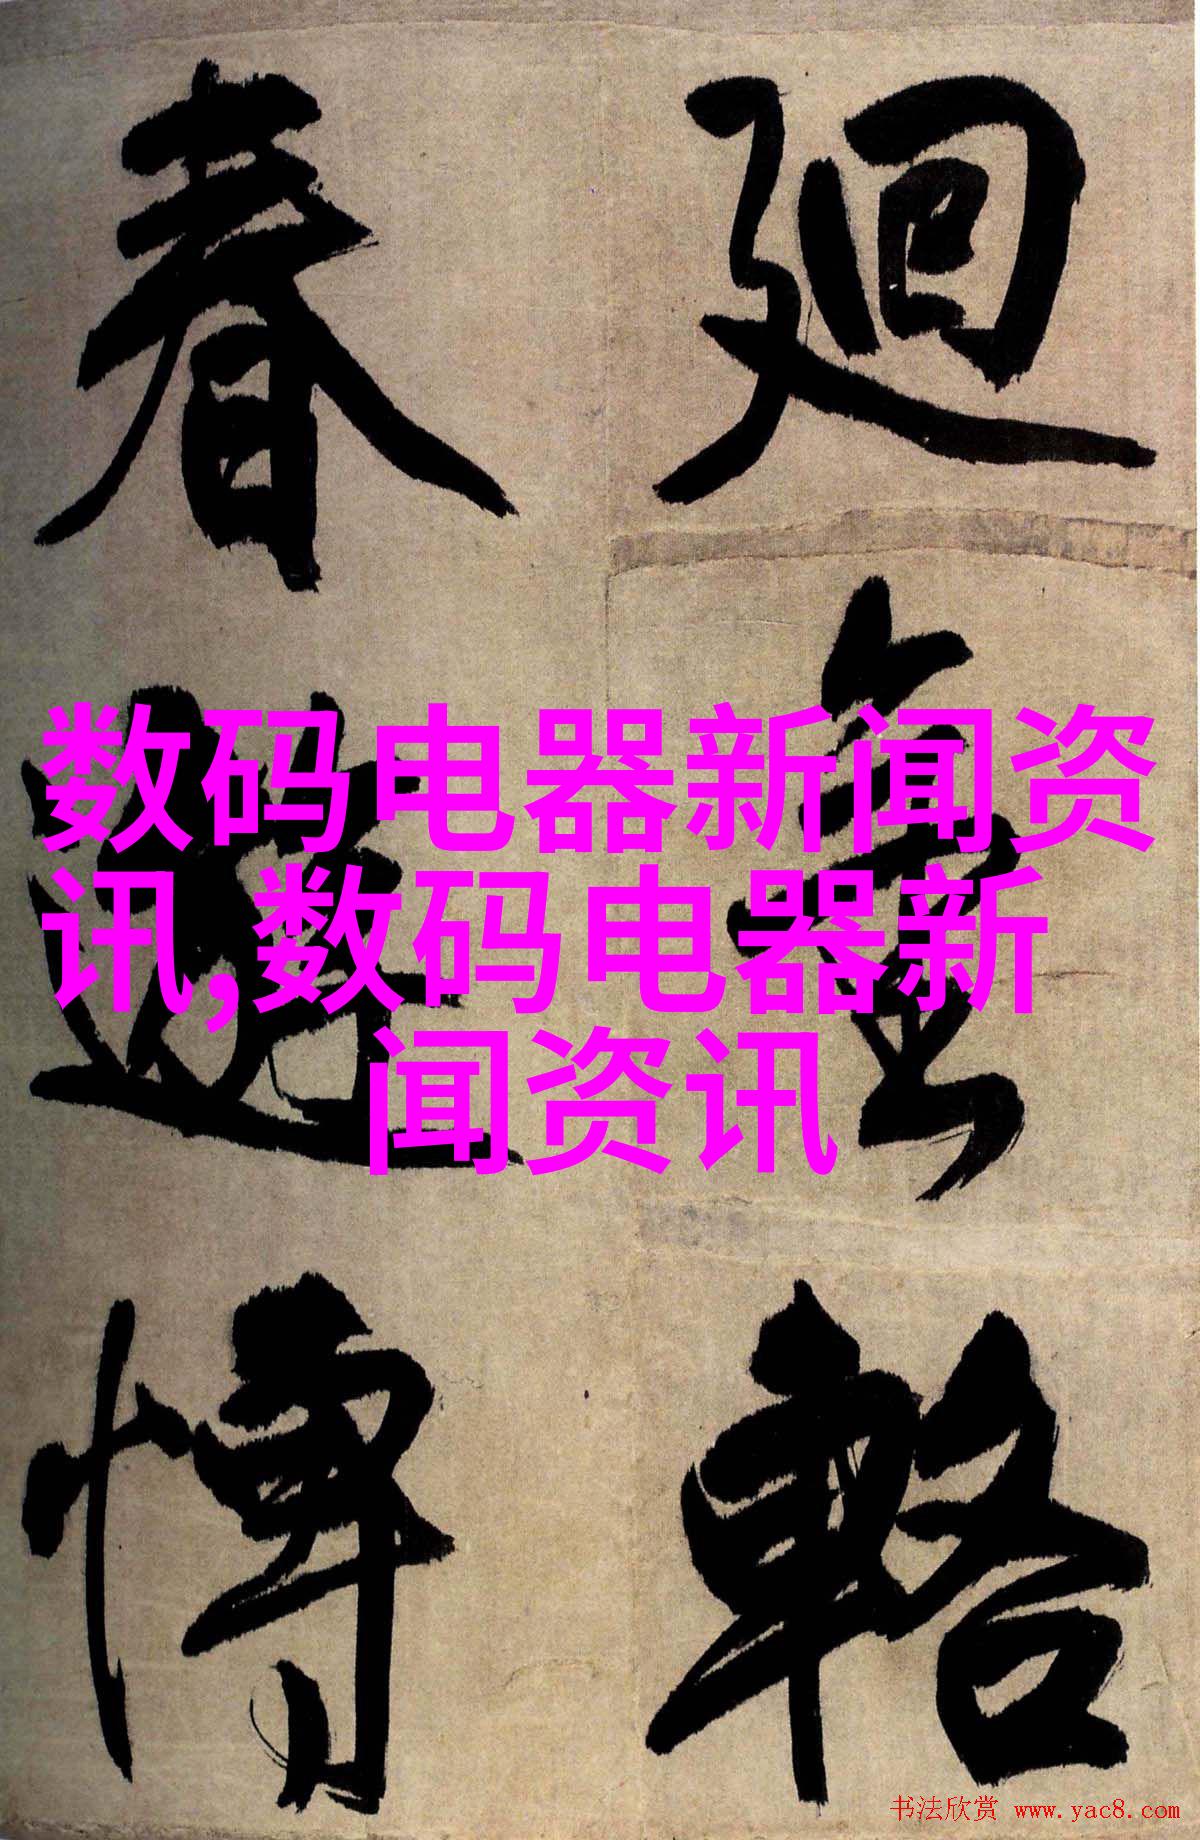 廻輅
春遊愽
数码电器新闻资
讯,数码电器新
闻资讯
书法欣赏 www.yac8.com